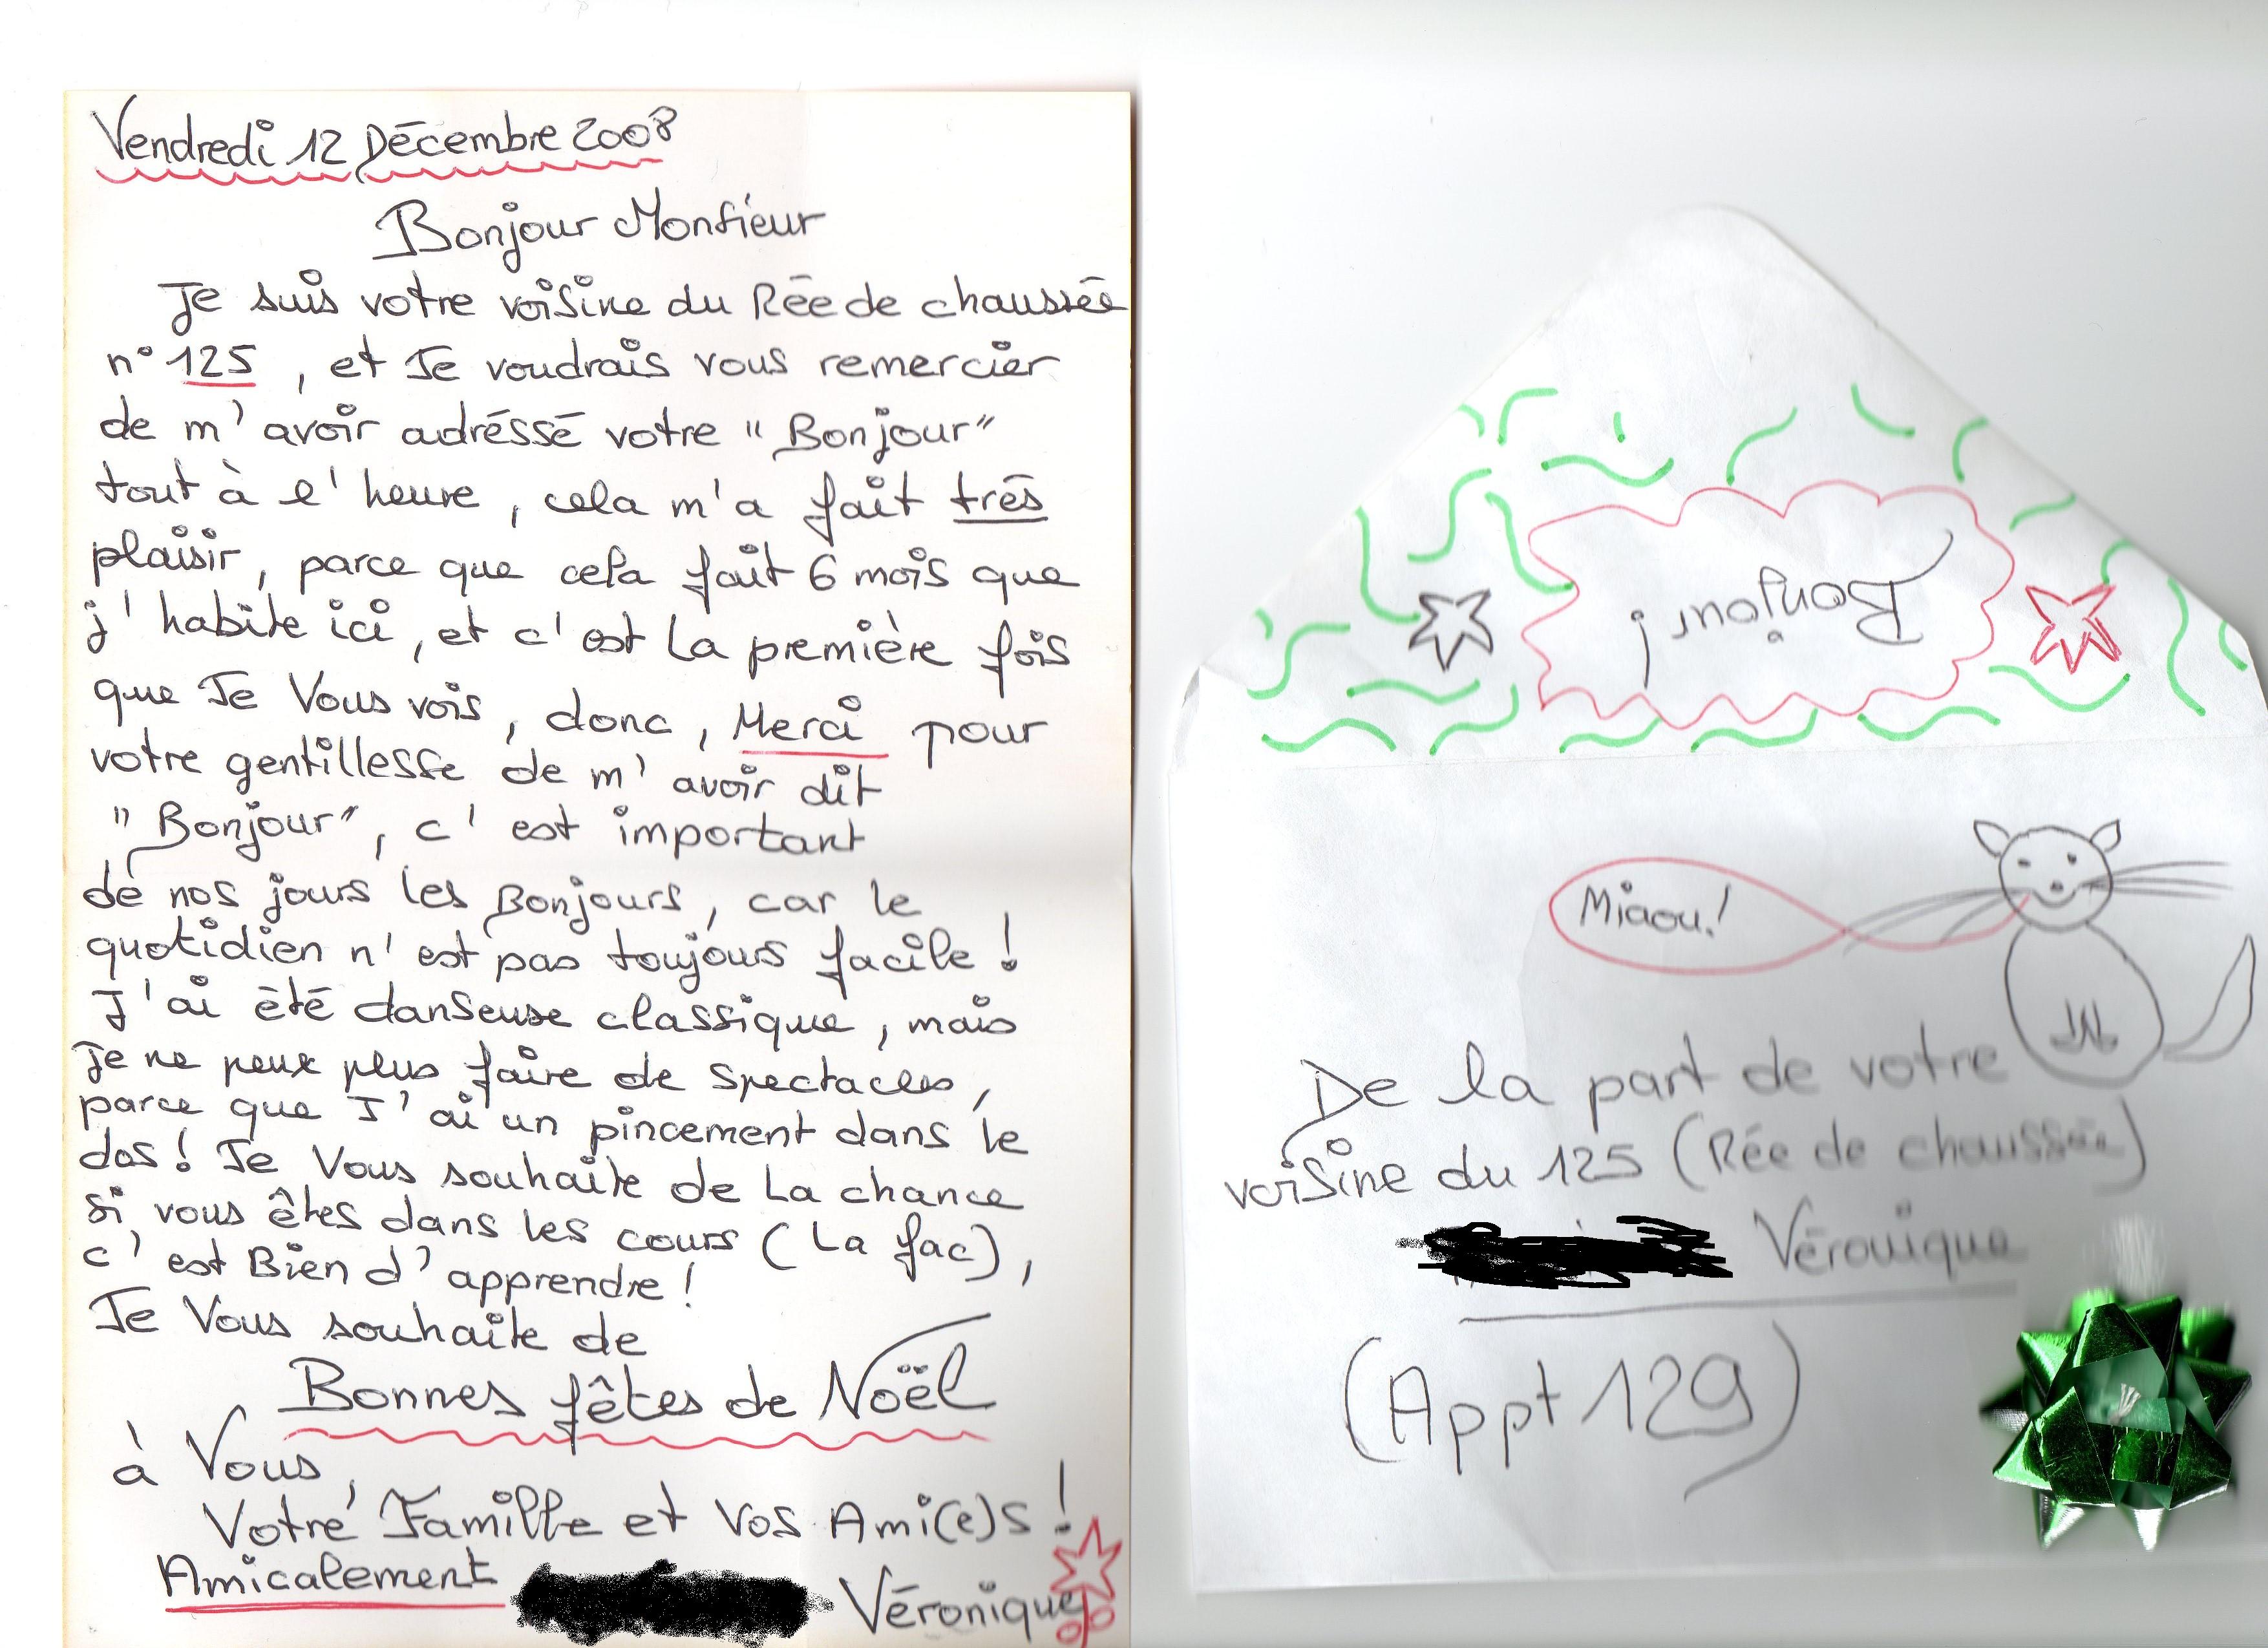 Vendredi 12 Décembre 2008
Bonjour Monsieur
Je suis votre voisine du Rée de chaussée
n° 125, et Je voudrais vous remercier
de m'avoir adréssé votre "Bonjour"
tout à l'heure, cela m'a fait trés
plaisir, parce que cela fait 6 mois que
j'habite ici, et c'est La première fois
que Je Vous vois, donc, Merci pour
votre gentillesse de m'avoir dit
"Bonjour", c'est important
de nos jours les Bonjours, car le
quotidien n'est pas toujours facile !
J'ai èté danseuse classique, mais
Je ne peux plus faire de spectacles,
parce que J'ai un pincement dans le
dos ! Je Vous souhaite de La chance
si vous êtes dans les cours (La fac),
c'est Bien d'apprendre !
Je Vous souhaite de
Bonnes fêtes de Noël
à Vous,
Votre Famille et Vos Ami(e)s !
Amicalement Véronique
Bonjour !
Miaou !
De la part de votre
voisine du 125 (Rée de chaussée)
Véronique
(Appt 129)